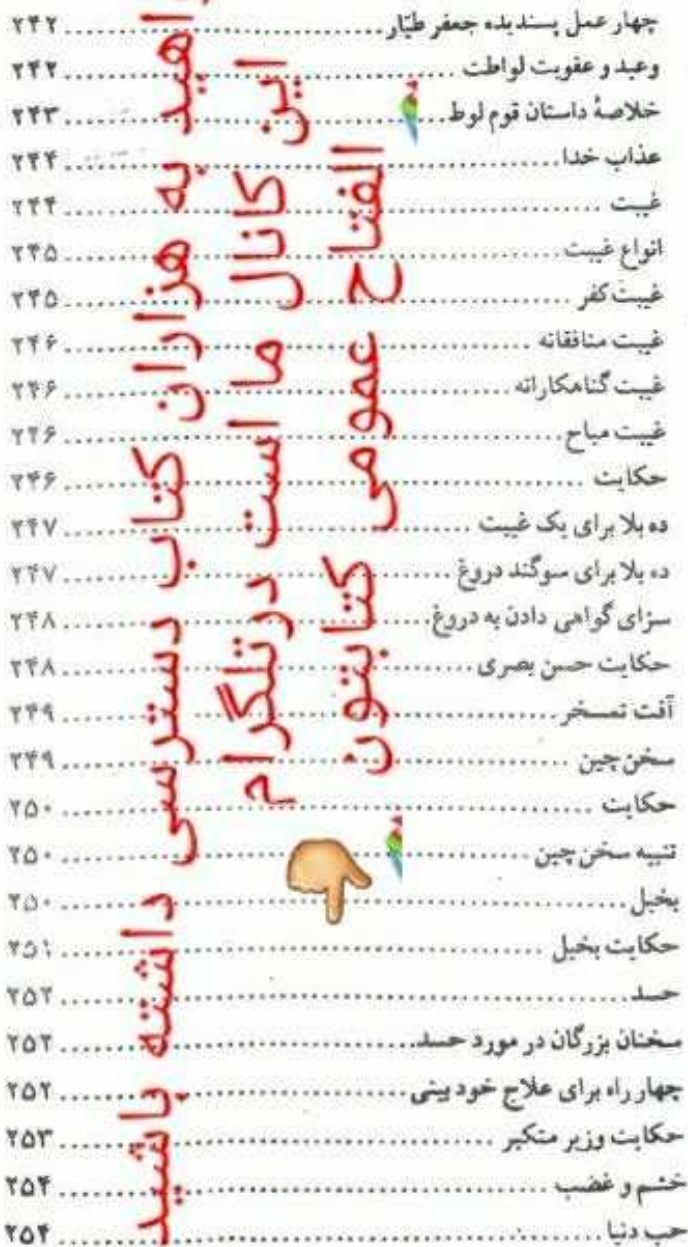 چهار عمل پسندیده جعفر طیّار ........ ۲۴۲
وعید و عقوبت لواطت ........ ۲۴۲
خلاصهٔ داستان قوم لوط ........ ۲۴۳
عذاب خدا ........ ۲۴۴
غیبت ........ ۲۴۴
انواع غیبت ........ ۲۴۵
غیبت کفر ........ ۲۴۵
غیبت منافقانه ........ ۲۴۶
غیبت گناهکارانه ........ ۲۴۶
غیبت مباح ........ ۲۴۶
حکایت ........ ۲۴۶
ده بلا برای یک غیبت ........ ۲۴۷
ده بلا برای سوگند دروغ ........ ۲۴۷
سزای گواهی دادن به دروغ ........ ۲۴۸
حکایت حسن بصری ........ ۲۴۸
آفت تمسخر ........ ۲۴۹
سخن چین ........ ۲۴۹
حکایت ........ ۲۵۰
تنبیه سخن چین ........ ۲۵۰
بخیل ........ ۲۵۰
حکایت بخیل ........ ۲۵۱
حسد ........ ۲۵۲
سخنان بزرگان در مورد حسد ........ ۲۵۲
چهار راه برای علاج خودبینی ........ ۲۵۲
حکایت وزیر متکبر ........ ۲۵۳
خشم و غضب ........ ۲۵۴
حب دنیا ........ ۲۵۴
الفتاح عمومی کتابتون
این کانال ما است در تلگرام
به هزاران کتاب دسترسی داشته باشید